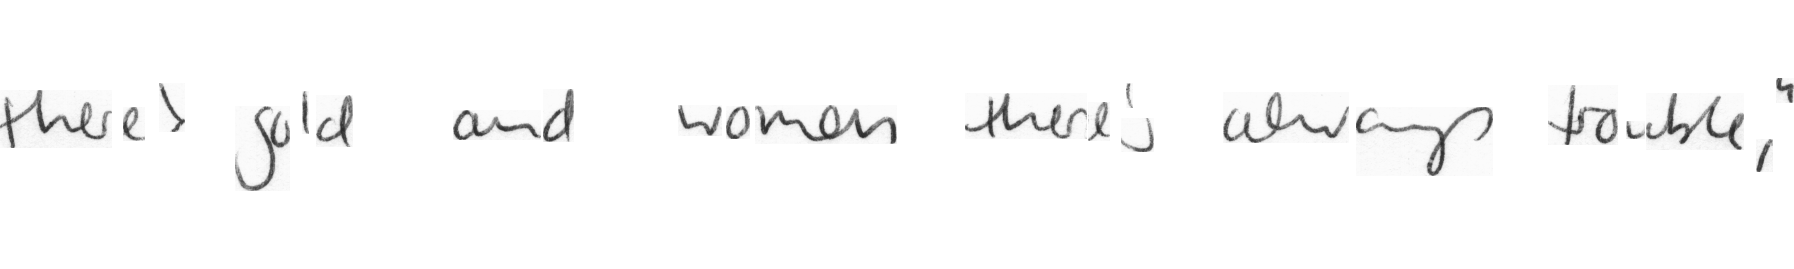 there's gold and women there's always trouble,"